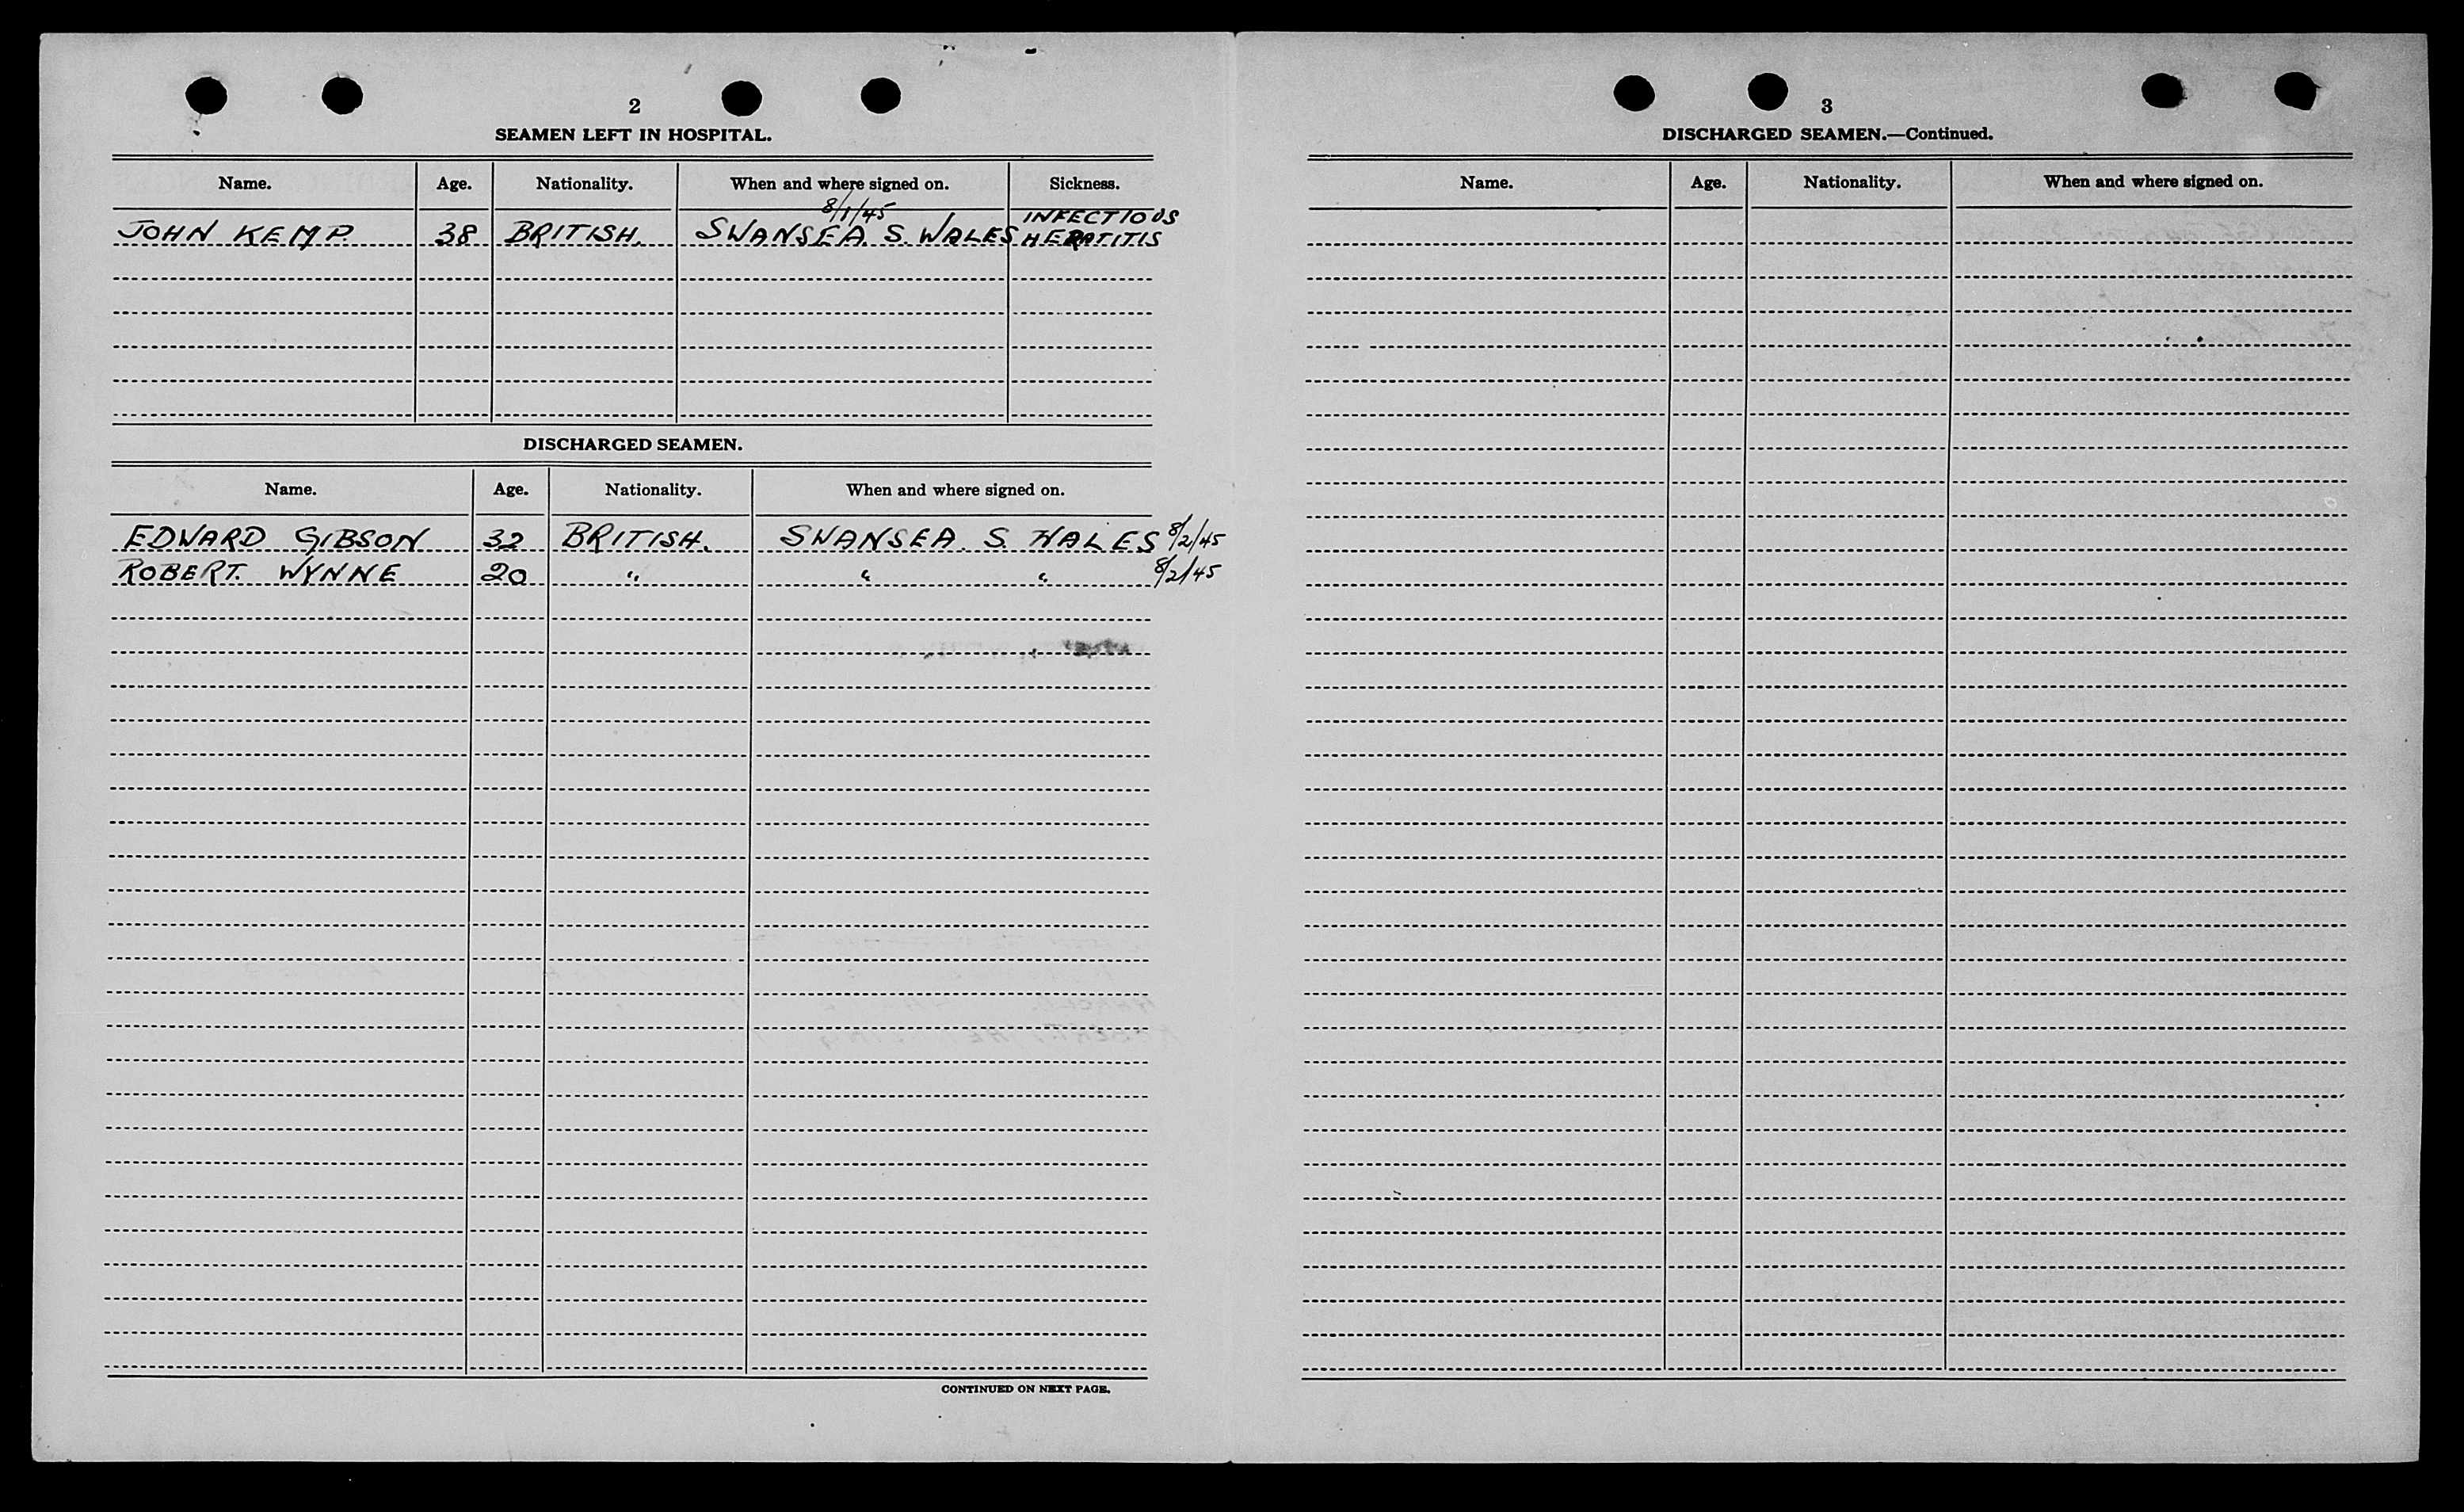 2
SEAMEN LEFT IN HOSPITAL.
Name. Age. Nationality. When and where signed on. Sickness.
8/1/45 INFECTIOUS
JOHN KEMP. 38 BRITISH. SWANSEA. S. WALES HEPATITIS
DISCHARGED SEAMEN.
Name. Age. Nationality. When and where signed on.
EDWARD GIBSON 32 BRITISH. SWANSEA. S. WALES 8/2/45
ROBERT. WYNNE 20 " " " 8/2/45
CONTINUED ON NEXT PAGE.
3
DISCHARGED SEAMEN.—Continued.
Name. Age. Nationality. When and where signed on.